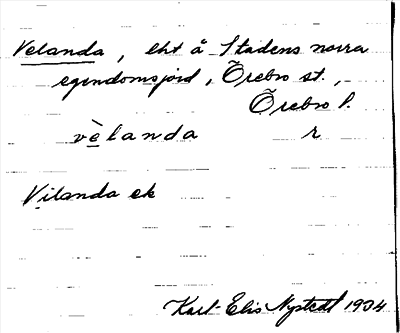 Velanda, lht å Stadens norra
egendomsjord, Örebro st.,
Örebro l.
vèlanda r
Vilanda ek
Karl-Elis Nystedt 1934